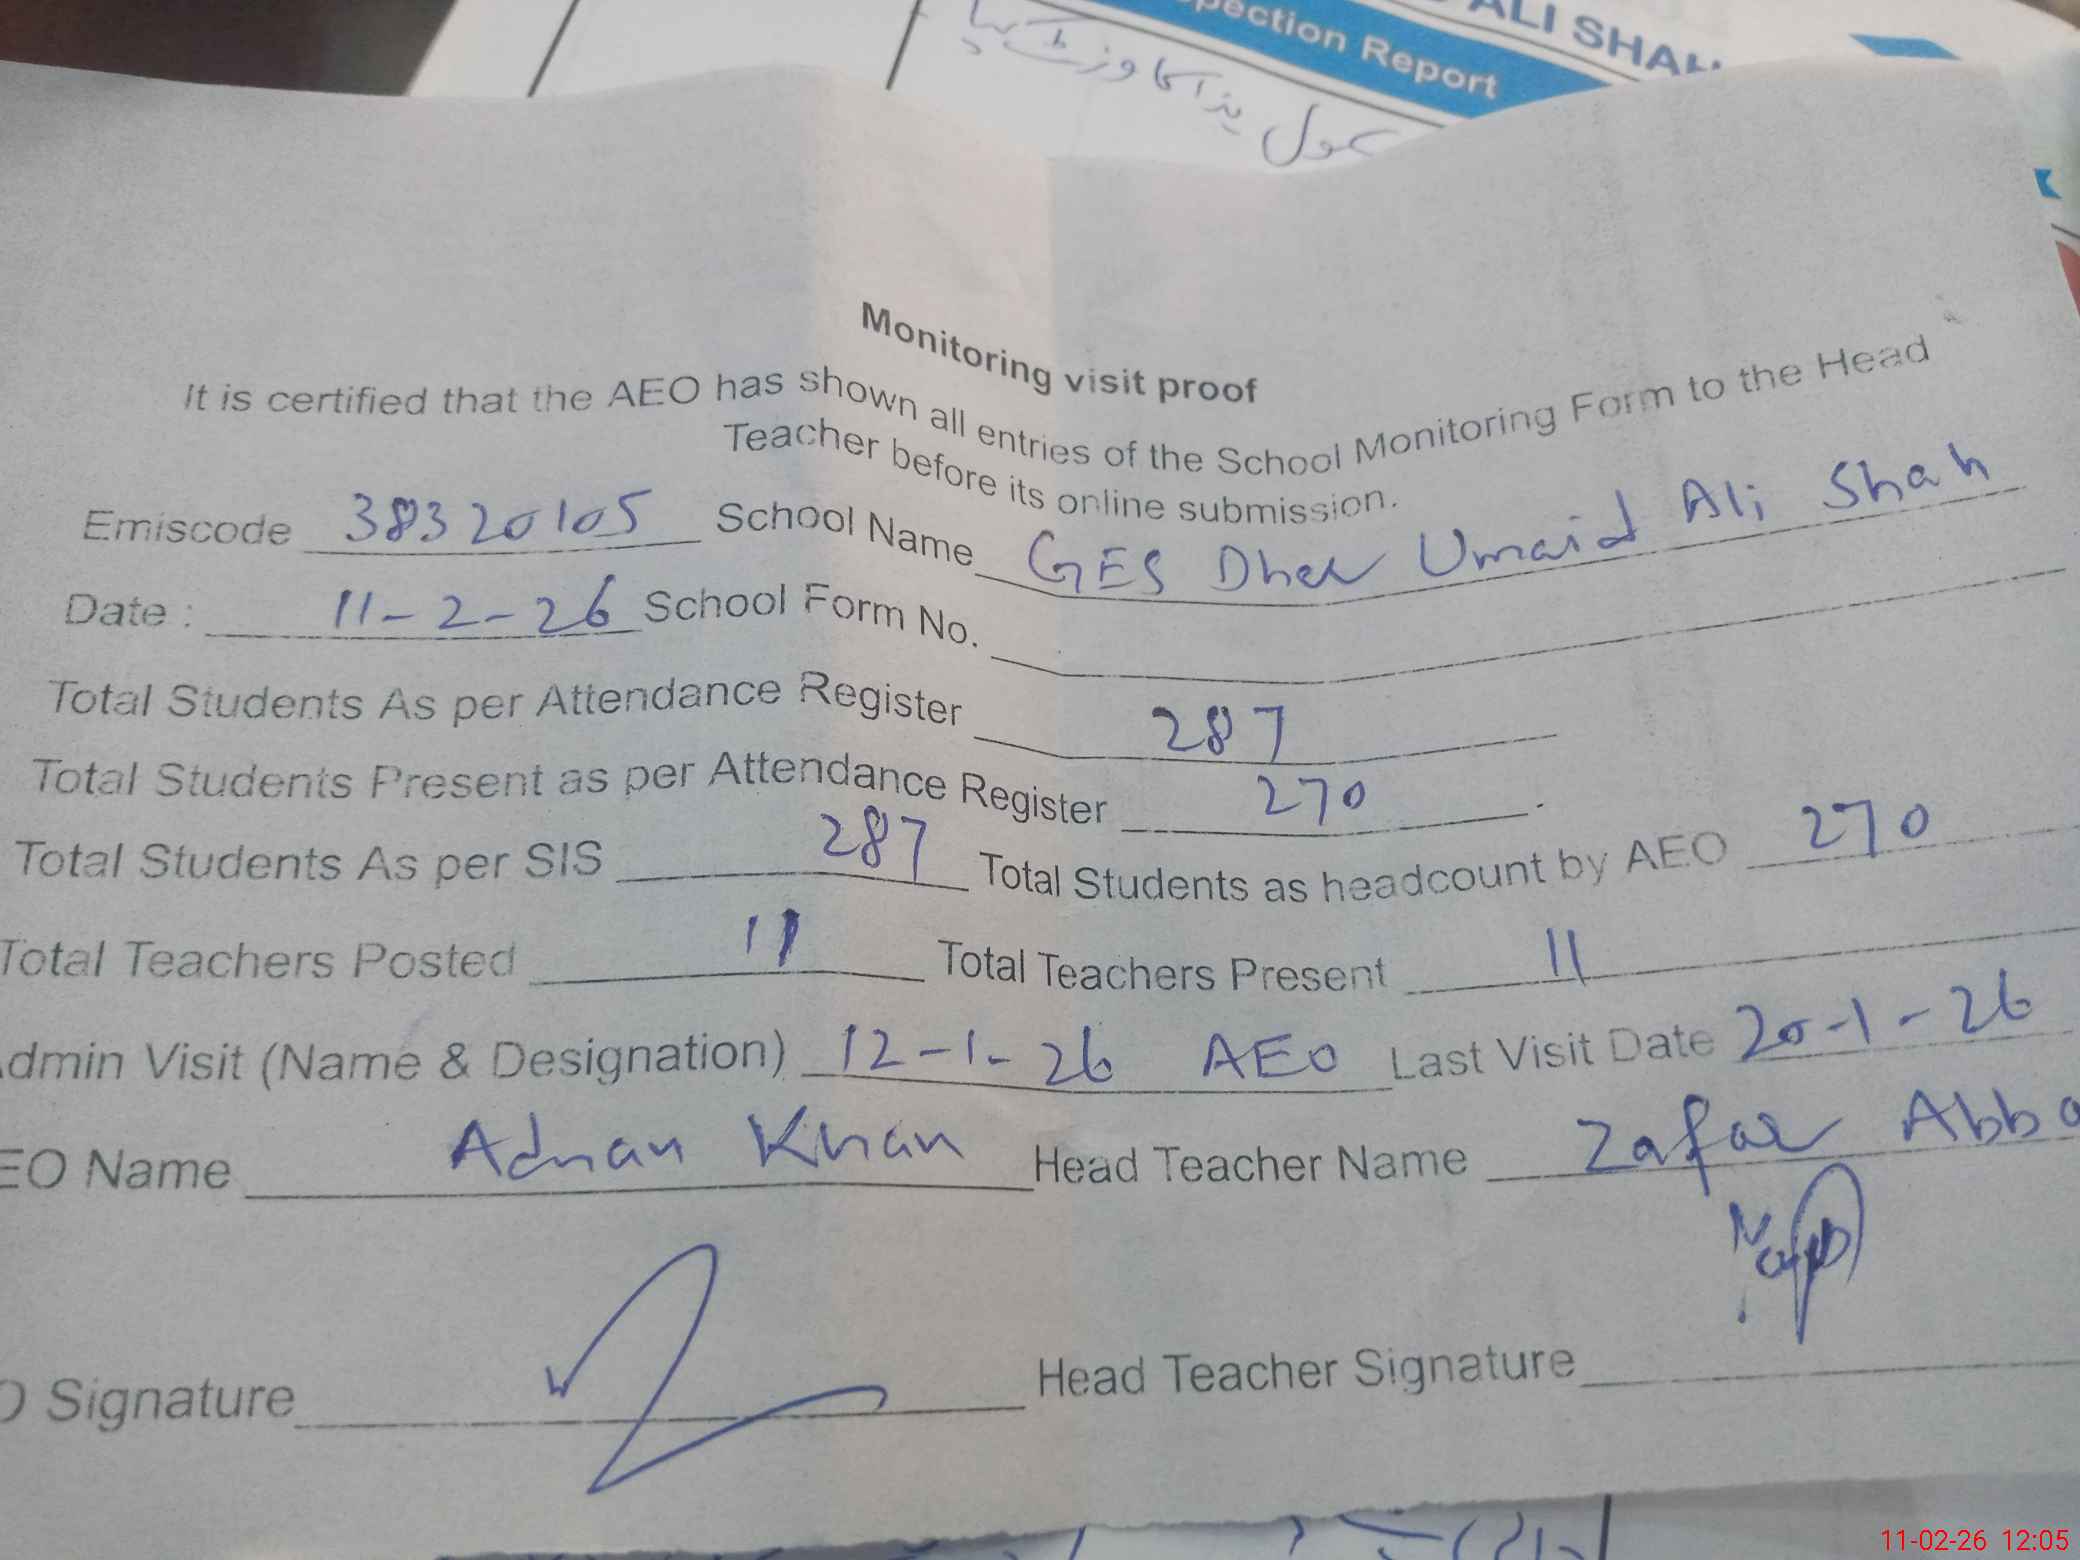 ALI SHAH
pection Report
سکول ہذا کا وزٹ کیا
Monitoring visit proof
It is certified that the AEO has shown all entries of the School Monitoring Form to the Head
Teacher before its online submission.
Emiscode 38320105 School Name GES Dher Umaid Ali Shah
Date : 11-2-26 School Form No.
Total Students As per Attendance Register 287
Total Students Present as per Attendance Register 270
Total Students As per SIS 287 Total Students as headcount by AEO 270
Total Teachers Posted 11 Total Teachers Present 11
dmin Visit (Name & Designation) 12-1-26 AEO Last Visit Date 20-1-26
EO Name Adnan Khan Head Teacher Name Zafar Abba
O Signature Head Teacher Signature
11-02-26 12:05